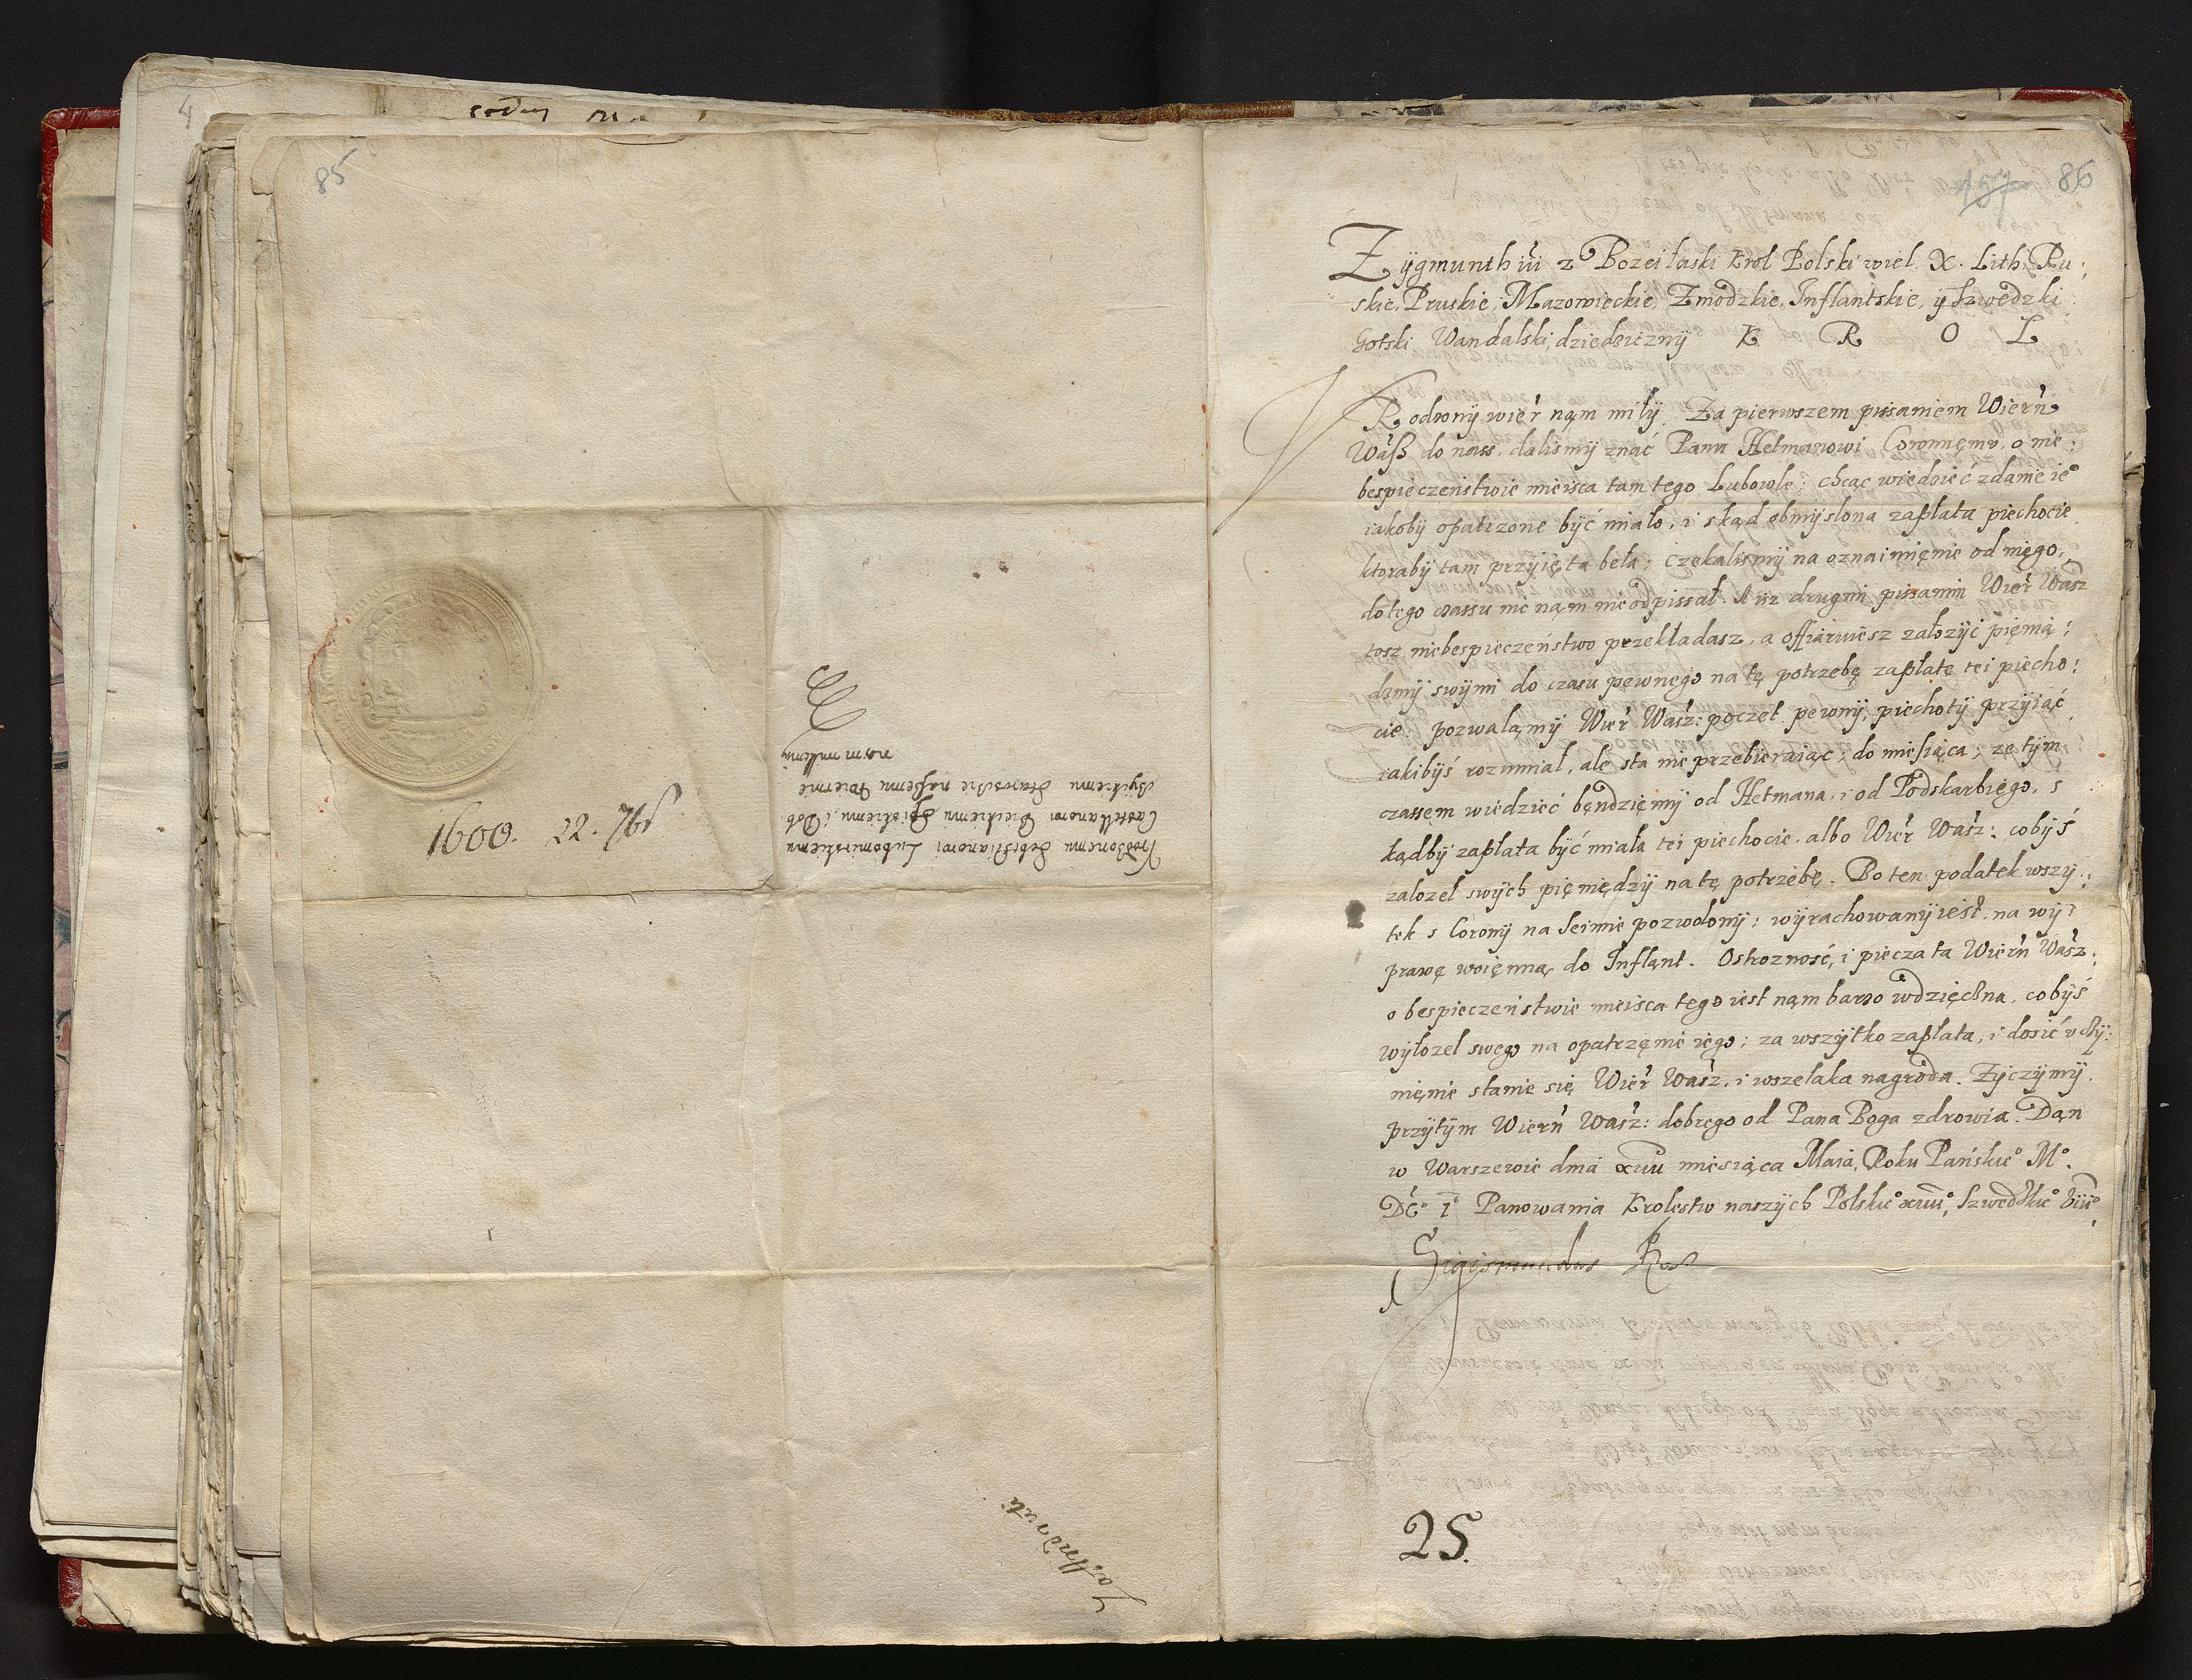 4
85
1600. 22. 7bɾ
Vrodzonemu Sebestianowi Lubomirskiemu
Castellanowi Bieckiemu Spiskiemu, i Dob
czyckiemu Staroscie naszemu wiernie
nam miłemu
86
Zÿgmunth iii z Bozei łaski Krol Polski wiel. X. Lith: Ru:
skie, Pruskie, Mazowieckie, Zmodzkie, Inflantskie, ÿ Szwedzki
Gotski Wandalski, dziedziczny K R O L
Vrodzonÿ wier nąm miłÿ. Za pierwszem pissaniem Wiern
Wasz do nass, dalismÿ znać Panu Hetmanowi Coronnęmv, o nie:
bespieczeństwie mieisca tam tego Lubowle: chcąc wiedzieć zdanie ieº
iakobÿ opatrzone być miało, i skąd obmyslona zapłata piechocie
ktorabÿ tam przyięta beła: czekalismÿ na oznaimięnie od nięgo,
do tego czassu nic nąm nie odpissał. A iż drugim pissanim Wier Wasz
tosz niebespieczeństwo przekładasz, a offiaruiesz założÿć pięnią:
dzmÿ swÿmi do czasu pewnego na tę potrzebę zapłatę tei piecho:
cie: pozwalamÿ Wier Wasz: poczet pewnÿ, piechotÿ przÿiąć
iakibÿś rozumiał, ale sta nie przebieraiąc; do miesiąca; ze tÿm
czassem wiedzieć będzięmÿ od Hetmana, i od Podskarbięgo, s
kądbÿ zapłata być miała tei piechocie, albo Wier Wasz: cobÿś
załozeł swÿch pięniędzÿ na tę potrzebę. Bo ten podatek wszÿ:
tek s Coronÿ na Seimie pozwolonÿ: wÿrachowanÿ iest, na wÿ:
prawę woięnną do Inflant. Ostrozność, i piecza ta Wiern Wasz:
o bespieczeństwie mieisca tego iest nąm barzo wdzięczna, cobÿś
wÿłozeł swego na opatrzęnie iego: za wszÿtko zapłata, i dosić vczÿ:
nięnie stanie się Wier Wasz, i wszelaka nagroda. Zÿczÿmÿ
przÿtÿm Wiern Wasz: dobrego od Pana Boga zdrowia. Dąn
w Warszewie dnia xviii miesiąca Maia, Roku Pańskieº Mº.
DCº Iº Panowania Krolestw naszÿch Polskieº xiiiiº, Szwedzkieº viiiº
Sigismundus Rex
25.